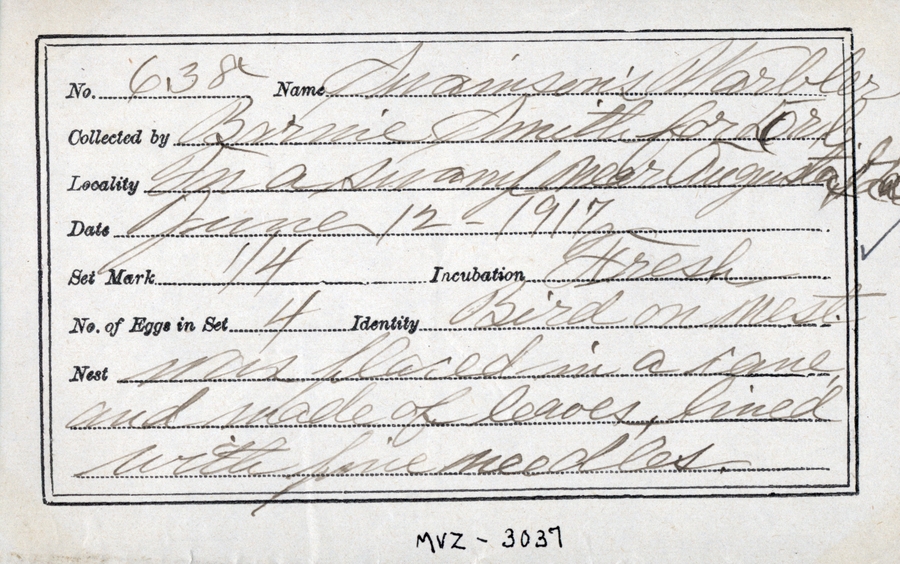 No. 638 Name Swainson's Warbler
Collected by Bernie Smith for
Locality In a swamp near Augusta, Ga
Date June 12 - 1917
Set Mark 1/4 Incubation Fresh
No. of Eggs in Set 4 Identity Bird on nest.
Nest was placed in a cane,
and made of leaves, lined
with pine needles.
MVZ - 3037